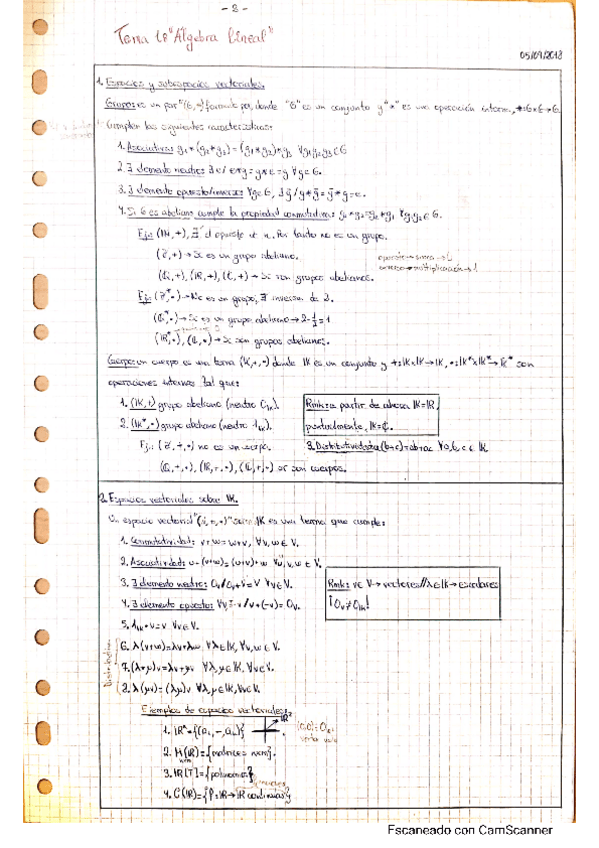 - 3 -
Tema 1: "Álgebra Lineal"
05/09/2018
1. Espacios y subespacios vectoriales.
Grupo: es un par "(G, *) formado por, donde "G" es un conjunto y "*" es una operación interna, *: G×G→G
Cumplen las siguientes características:
1. Asociativa: g₁*(g₂*g₃) = (g₁*g₂)*g₃ ∀g₁,g₂,g₃∈G
2. ∃ elemento neutro: ∃ e / e*g = g*e = g ∀g∈G.
3. ∃ elemento opuesto/inverso: ∀g∈G, ∃ g̃ / g*g̃ = g̃*g = e.
4. Si G es abeliano cumple la propiedad conmutativa: g₁*g₂ = g₂*g₁ ∀g₁,g₂∈G.
Ej: (ℕ, +), ∄ el opuesto de n. Por tanto no es un grupo.
(ℤ, +) → Si es un grupo abeliano.
opuesto → suma →
inverso → multiplicación → 1
(ℚ, +), (ℝ, +), (ℂ, +) → Si son grupos abelianos.
Ej: (ℤ*, ·) → No es un grupo, ∄ inverso de 2.
(ℚ*, ·) → Si es un grupo abeliano → 2·½ = 1
(ℝ*, ·), (ℂ, ·) → Si son grupos abelianos.
Cuerpo: un cuerpo es una terna (K, +, ·) donde K es un conjunto y +: K×K→K, ·: K*×K*→K* son
operaciones internas tal que:
1. (K, +) grupo abeliano (neutro 0_K).
2. (K*, ·) grupo abeliano (neutro 1_K).
Rmk: a partir de ahora K=ℝ,
puntualmente, K=ℂ.
Ej: (ℤ, +, ·) no es un cuerpo.
3. Distributividad: a(b+c) = ab+ac ∀a,b,c∈K
(ℚ, +, ·), (ℝ, +, ·), (ℂ, +, ·) si son cuerpos.
2. Espacios vectoriales sobre K.
Un espacio vectorial "(V, +, ·)" sobre K es una terna que cumple:
1. Conmutatividad: v+w = w+v, ∀v,w∈V.
2. Asociatividad: u+(v+w) = (u+v)+w ∀u,v,w∈V.
3. ∃ elemento neutro: 0_V / 0_V+v = v ∀v∈V.
4. ∃ elemento opuesto: ∀v ∃ -v / v+(-v) = 0_V.
Rmk: v∈V → vectores // λ∈K → escalares
¡0_V≠0_K!
5. 1_K·v = v ∀v∈V.
6. λ(v+w) = λv+λw ∀λ∈K, ∀v,w∈V.
7. (λ+μ)v = λv+μv ∀λ,μ∈K, ∀v∈V.
8. λ(μv) = (λμ)v ∀λ,μ∈K, ∀v∈V.
Ejemplos de espacios vectoriales:
1. ℝⁿ = {(a₁, ..., aₙ)}
ℝ²
(0,0) = 0
2. M(ℝ) = {matrices n×m}.
3. ℝ[T] = {polinomios}
4. C(ℝ) = {f: ℝ→ℝ continuas}
Escaneado con CamScanner